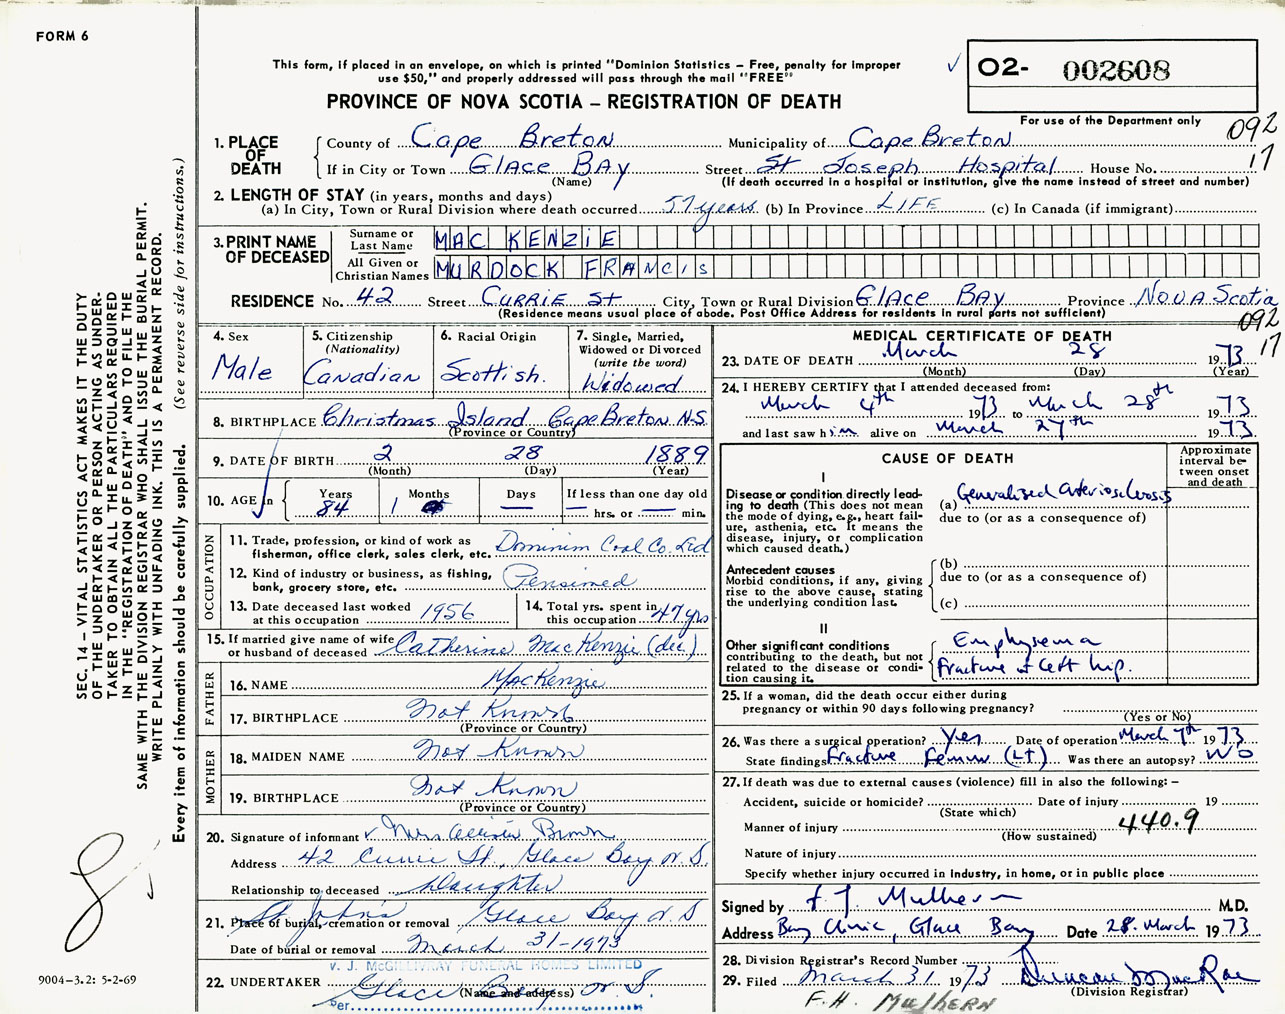 FORM 6
This form, if placed in an envelope, on which is printed "Dominion Statistics – Free, penalty for improper
use $50," and properly addressed will pass through the mail "FREE"
PROVINCE OF NOVA SCOTIA – REGISTRATION OF DEATH
O2- 002608
For use of the Department only
092
17
1. PLACE OF DEATH
County of Cape Breton Municipality of Cape Breton
If in City or Town GLACE BAY Street St Joseph Hospital House No.
(Name) (If death occurred in a hospital or institution, give the name instead of street and number)
2. LENGTH OF STAY (in years, months and days)
(a) In City, Town or Rural Division where death occurred 57 years (b) In Province LIFE (c) In Canada (if immigrant)
3. PRINT NAME OF DECEASED
Surname or Last Name MAC KENZIE
All Given or Christian Names MURDOCK FRANCIS
RESIDENCE No. 42 Street CURRIE St City, Town or Rural Division GLACE BAY Province NOVA Scotia
(Residence means usual place of abode. Post Office Address for residents in rural parts not sufficient)
092
17
4. Sex
Male
5. Citizenship
(Nationality)
Canadian
6. Racial Origin
Scottish.
7. Single, Married,
Widowed or Divorced
(write the word)
Widowed
8. BIRTHPLACE Christmas Island Cape Breton N.S.
(Province or Country)
9. DATE OF BIRTH 2 28 1889
(Month) (Day) (Year)
10. AGE in
Years 84
Months 1
Days —
If less than one day old
— hrs. or — min.
OCCUPATION
11. Trade, profession, or kind of work as
fisherman, office clerk, sales clerk, etc. Dominion Coal Co. Ltd
12. Kind of industry or business, as fishing,
bank, grocery store, etc. Pensioned
13. Date deceased last worked
at this occupation 1956
14. Total yrs. spent in
this occupation 47 yrs
15. If married give name of wife
or husband of deceased Catherine MacKenzie (dec.)
FATHER
16. NAME MacKenzie
17. BIRTHPLACE Not Known
(Province or Country)
MOTHER
18. MAIDEN NAME Not Known
19. BIRTHPLACE Not Known
(Province or Country)
20. Signature of informant Mrs. Brown
Address 42 Currie St., Glace Bay N.S.
Relationship to deceased Daughter
21. Place of burial, cremation or removal St John's Glace Bay N.S
Date of burial or removal March 31-1973
V. J. McGILLIVRAY FUNERAL HOMES LIMITED
22. UNDERTAKER Glace Bay N.S.
(Name and address)
Per
MEDICAL CERTIFICATE OF DEATH
23. DATE OF DEATH March 28 1973
(Month) (Day) (Year)
24. I HEREBY CERTIFY that I attended deceased from:
March 4th 1973 to March 28th 1973
and last saw him alive on March 27th 1973
CAUSE OF DEATH
Approximate
interval be-
tween onset
and death
I
Disease or condition directly lead-
ing to death (This does not mean
the mode of dying, e.g., heart fail-
ure, asthenia, etc. It means the
disease, injury, or complication
which caused death.)
(a) Generalized arteriosclerosis
due to (or as a consequence of)
Antecedent causes
Morbid conditions, if any, giving
rise to the above cause, stating
the underlying condition last.
(b)
due to (or as a consequence of)
(c)
II
Other significant conditions
contributing to the death, but not
related to the disease or condi-
tion causing it.
Emphysema
Fracture of Left hip.
25. If a woman, did the death occur either during
pregnancy or within 90 days following pregnancy?
(Yes or No)
26. Was there a surgical operation? Yes Date of operation March 7th 1973
State findings Fracture Femur (Lt) Was there an autopsy? No
27. If death was due to external causes (violence) fill in also the following: –
Accident, suicide or homicide? Date of injury 19
(State which)
Manner of injury 440.9
(How sustained)
Nature of injury
Specify whether injury occurred in industry, in home, or in public place
Signed by Mulhern M.D.
Address Bay Clinic, Glace Bay Date 28 March 1973
28. Division Registrar's Record Number
29. Filed March 31 1973 Duncan MacRae
(Division Registrar)
F.H. MULHERN
SEC. 14 – VITAL STATISTICS ACT MAKES IT THE DUTY
OF THE UNDERTAKER OR PERSON ACTING AS UNDER-
TAKER TO OBTAIN ALL THE PARTICULARS REQUIRED
IN THE "REGISTRATION OF DEATH" AND TO FILE THE
SAME WITH THE DIVISION REGISTRAR WHO SHALL ISSUE THE BURIAL PERMIT.
WRITE PLAINLY WITH UNFADING INK. THIS IS A PERMANENT RECORD.
Every item of information should be carefully supplied. (See reverse side for instructions.)
9004-3.2: 5-2-69